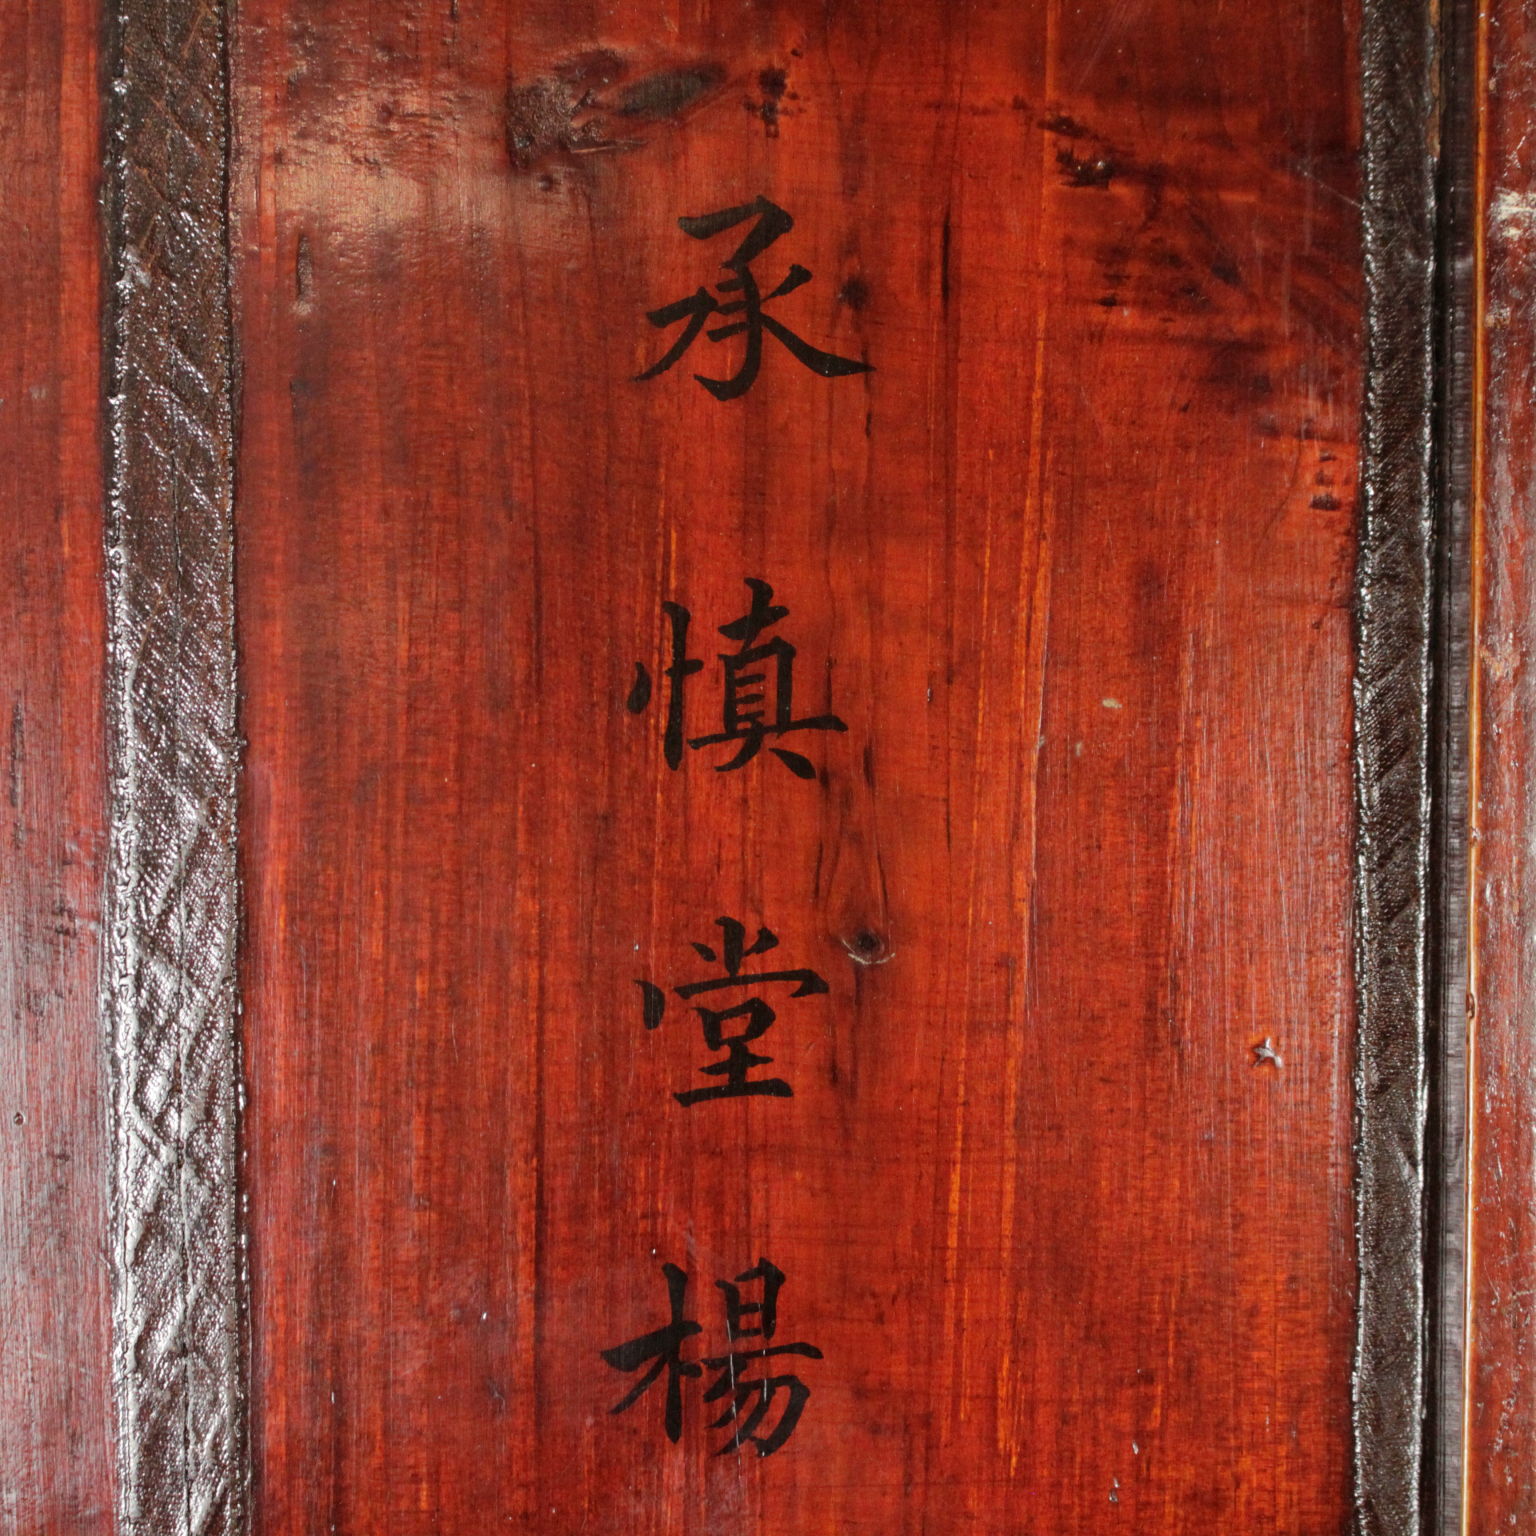 承慎堂楊